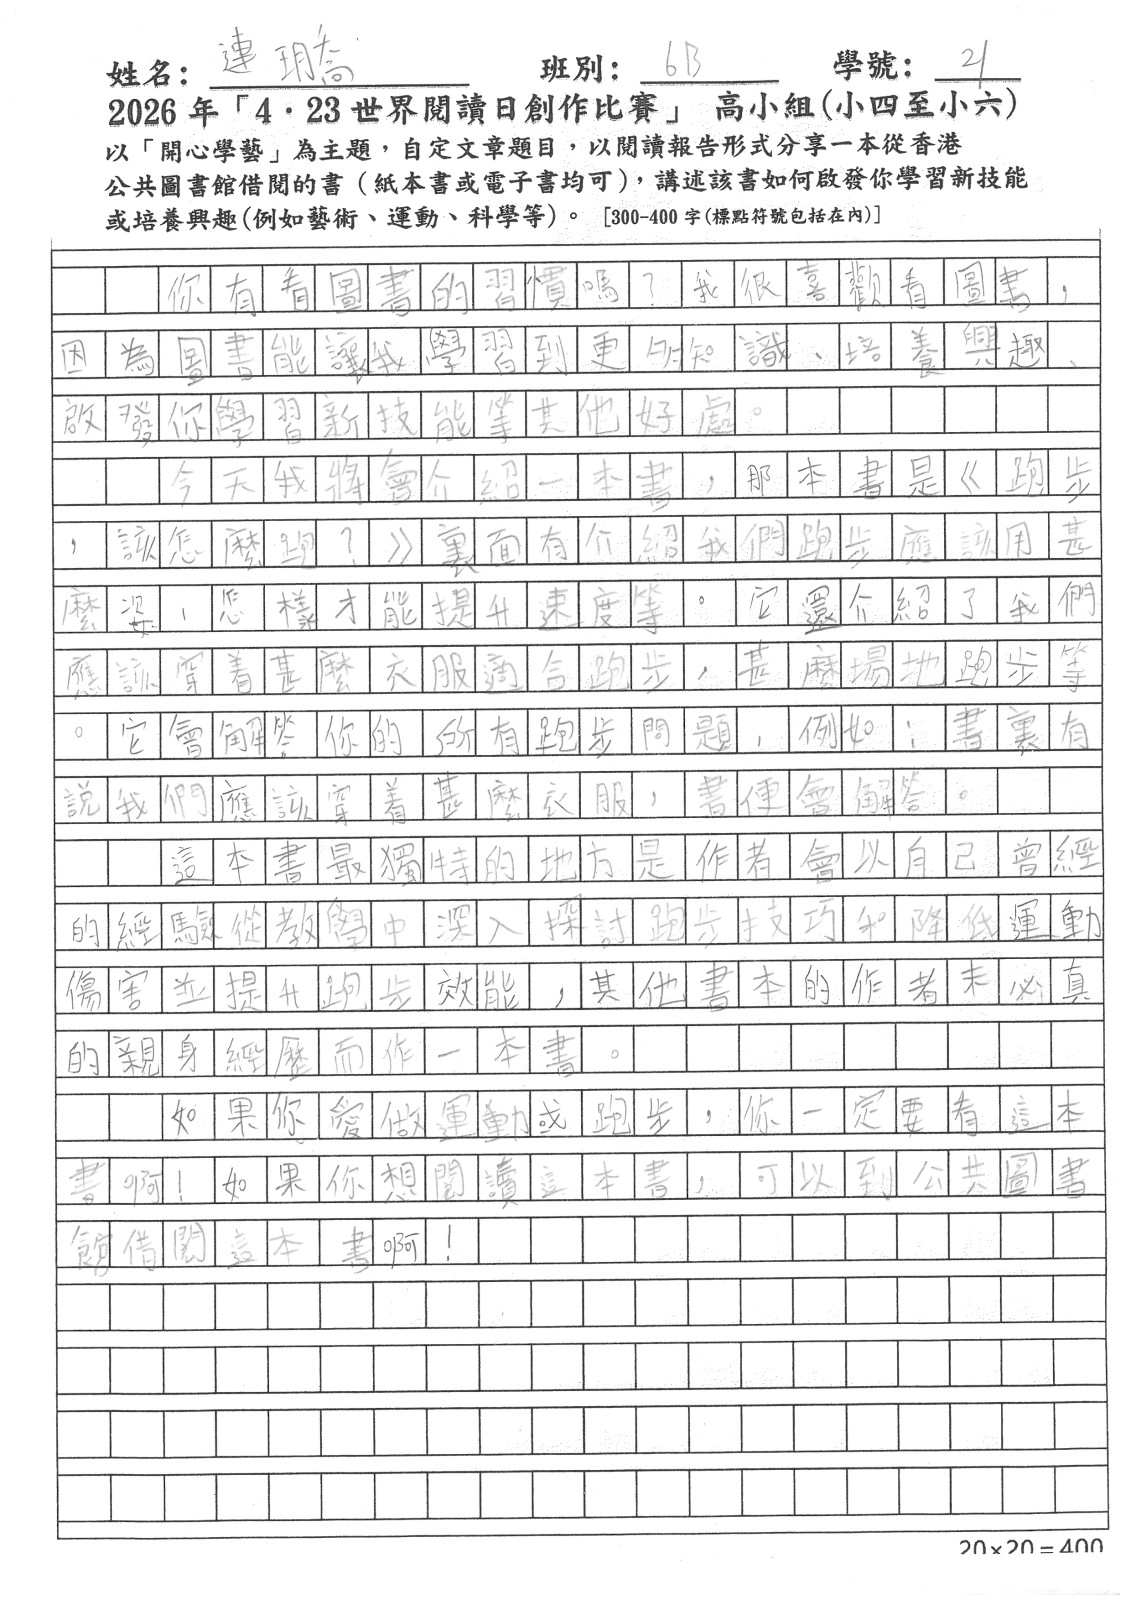 姓名：連玥喬 班別：6B 學號：21
2026年「4．23世界閱讀日創作比賽」 高小組(小四至小六)
以「開心學藝」為主題，自定文章題目，以閱讀報告形式分享一本從香港
公共圖書館借閱的書（紙本書或電子書均可），講述該書如何啟發你學習新技能
或培養興趣(例如藝術、運動、科學等)。 [300-400字(標點符號包括在內)]
你有看圖書的習慣嗎？我很喜歡看圖書，
因為圖書能讓我學習到更多知識、培養興趣、
啟發你學習新技能等其他好處。
今天我將會介紹一本書，那本書是《跑步
，該怎麼跑？》裏面有介紹我們跑步應該用甚
麼姿，怎樣才能提升速度等。它還介紹了我們
應該穿着甚麼衣服適合跑步，甚麼場地跑步等
。它會解答你的所有跑步問題，例如：書裏有
說我們應該穿着甚麼衣服，書便會解答。
這本書最獨特的地方是作者會以自己曾經
的經驗從教學中深入探討跑步技巧和降低運動
傷害並提升跑步效能，其他書本的作者未必真
的親身經歷而作一本書。
如果你愛做運動或跑步，你一定要看這本
書啊！如果你想閱讀這本書，可以到公共圖書
館借閱這本書啊！
20×20=400